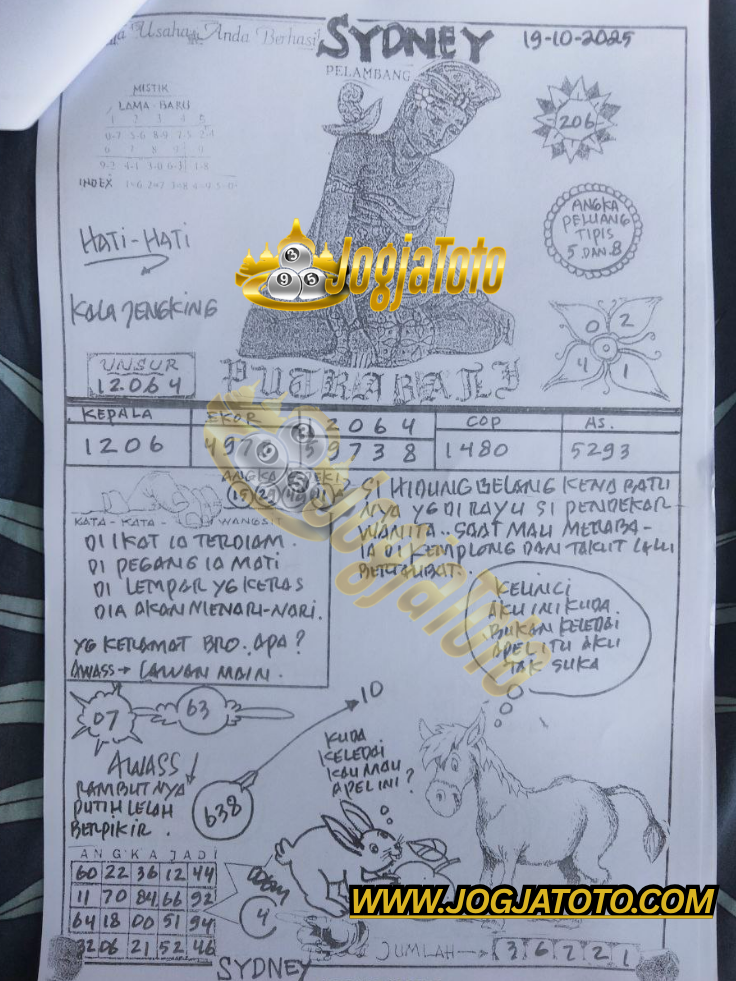 Usaha Anda Berhasil
SYDNEY
19-10-2025
PELAMBANG
MISTIK
LAMA - BARU
1 2 3 4 5
0-7 5-6 8-9 2-5 2-4
6 7 8 9 0
9-2 4-1 3-0 6-3 1-8
INDEX 1=6 2=7 3=8 4=9 5=0
206
ANGKA
PELUANG
TIPIS
5 DAN 8
HATI-HATI
KALA JENGKING
JogjaToto
9 5
0 2
4 1
UNSUR
12064
PUTRA BALI
KEPALA
EKOR
2064
COP
AS.
1206
497
59738
1480
5293
ANGKA
15
KATA - KATA - WANGSIT
DI IKAT IA TERDIAM.
DI PEGANG IA MATI
DI LEMPAR YG KERAS
DIA AKAN MENARI-NARI.
YG KERAMAT BRO. APA?
AWASS → LAWAN MAIN.
SI HIDUNG BELANG KENA BATU
NYA YG DI RAYU SI PENDEKAR
WANITA.. SAAT MAU MERABA-
IA DI KEMPLONG DAN TAKUT LALU
BERTAUBAT.
KELINCI
AKU INI KUDA.
BUKAN KELEDAI
APEL ITU AKU
TAK SUKA
JogjaToto
07
63
10
AWASS
RAMBUTNYA
PUTIH LELAH
BERPIKIR.
638
KUDA
KELEDAI
KAU MAU
APEL INI?
ANGKA JADI
60 22 36 12 44
11 70 84 66 92
64 18 00 51 94
32 06 21 52 46
4
WWW.JOGJATOTO.COM
JUMLAH → 3 6 7 2 1
SYDNEY